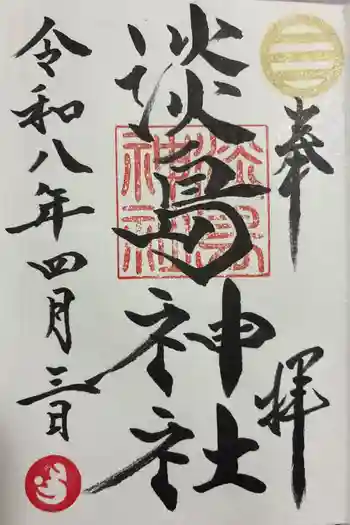 奉拝
淡島神社
淡島神社
令和八年四月三日